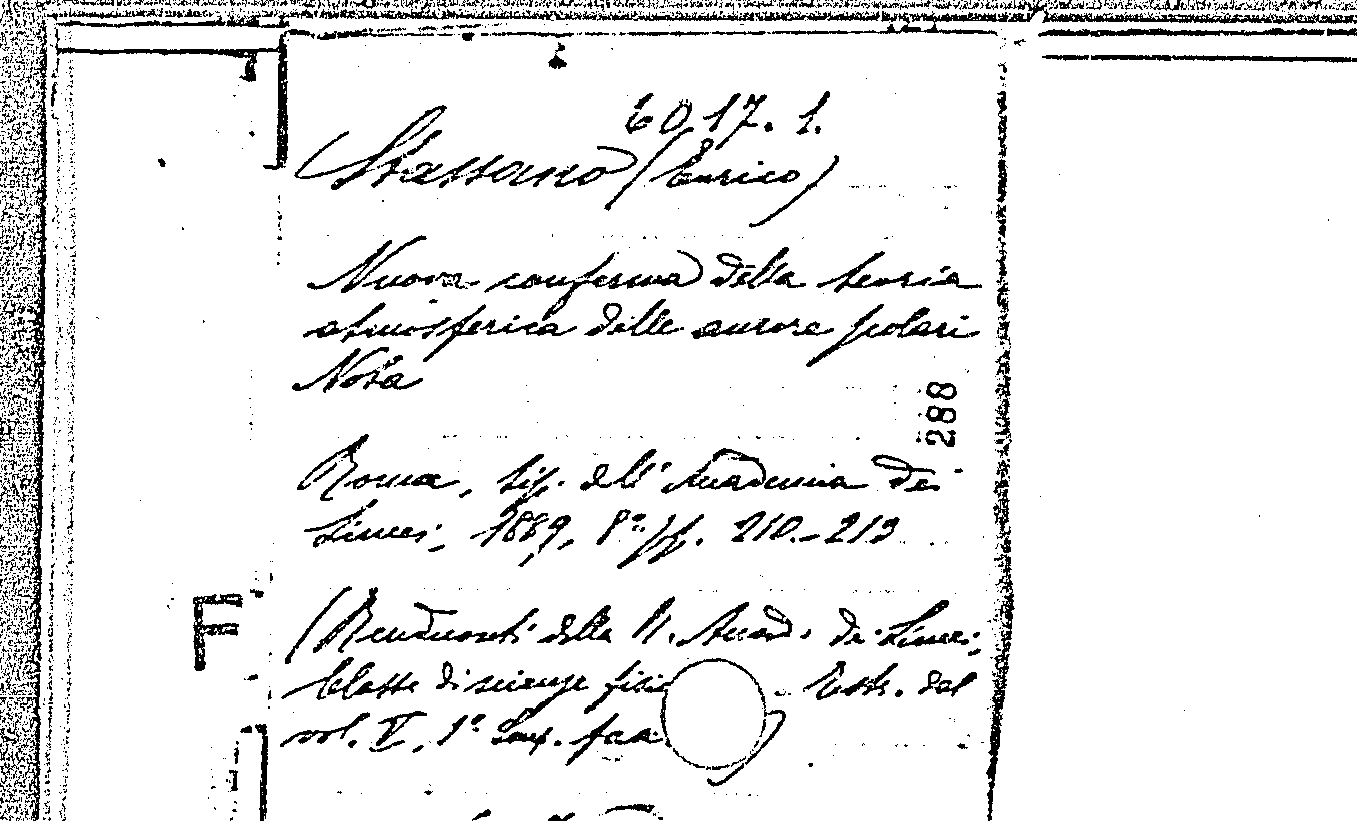 6017.1.
Stassano (Enrico)
Nuova conferma della teoria
atmosferica delle aurore polari
Nota
288
Roma, tip. dell'Accademia dei
Lincei, 1889, 8º pp. 210-213
(Rendiconti della R. Accad. dei Lincei,
F
Classe di scienze fisic Estr. del
vol. V, 1º Sem. fas )